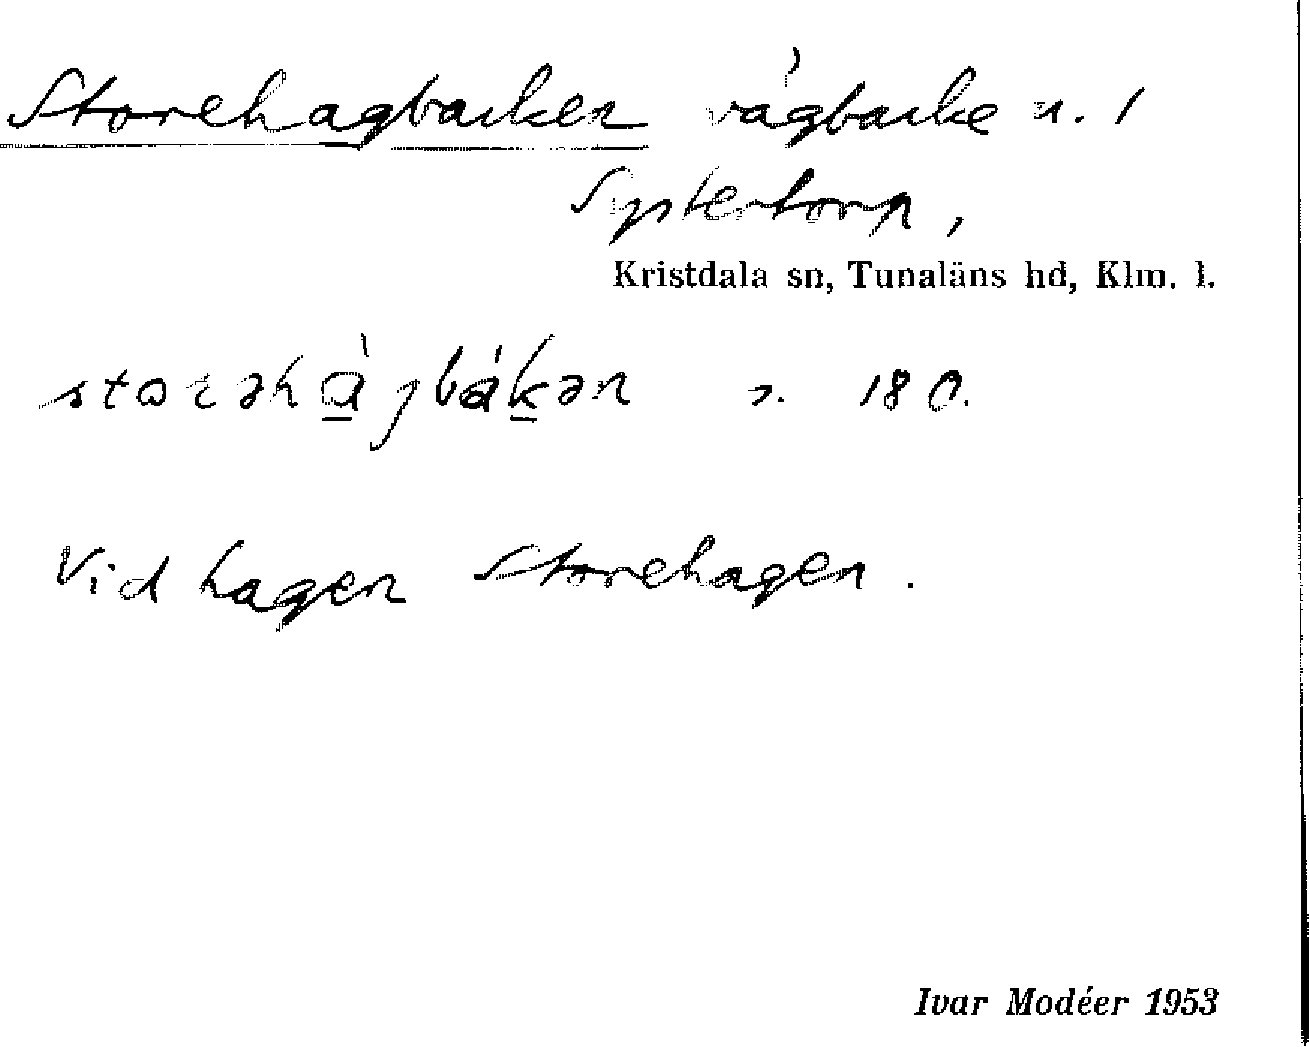 Storehagbacken vägbacke n. 1
Systertorp,
Kristdala sn, Tunaläns hd, Klm. l.
storəhàgbákən s. 180.
Vid hagen Storehagen.
Ivar Modéer 1953